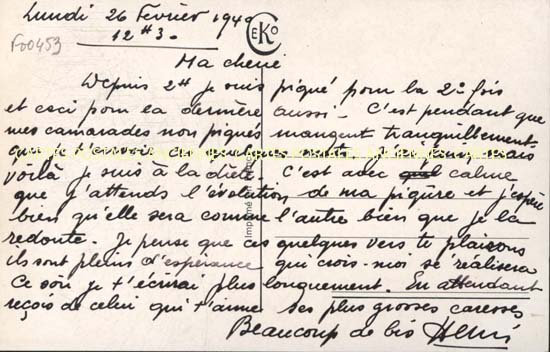 Lundi 26 Février 1940
12 H 30
F00453
CEKO
Ma chérie
Depuis 2H je suis piqué pour la 2e fois
et ceci pour la dernière aussi - C'est pendant que
mes camarades non piqués mangent tranquillement
que je t'envoie
voilà je suis à la diète. C'est avec calme
que j'attends l'évolution de ma piqûre et j'espère
bien qu'elle sera comme l'autre bien que je la
redoute. Je pense que ces quelques vers te plairons
ils sont pleins d'espérance qui crois-moi se réalisera
Ce soir je t'écrirai plus longuement. En attendant
reçois de celui qui t'aime ses plus grosses caresses
Beaucoup de bis Henri
Imprimé